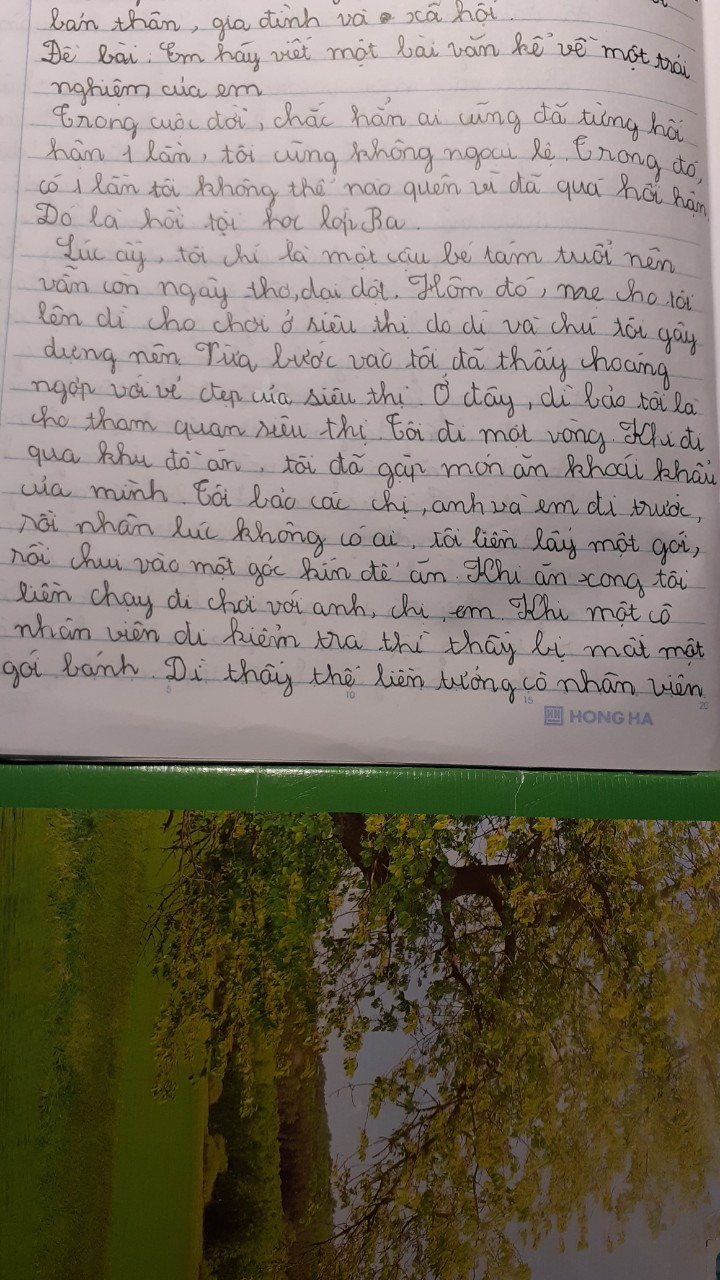 bản thân, gia đình và xã hội.
Đề bài: Em hãy viết một bài văn kể về một trải
nghiệm của em
Trong cuộc đời, chắc hẳn ai cũng đã từng hối
hận 1 lần, tôi cũng không ngoại lệ. Trong đó,
có 1 lần tôi không thể nào quên vì đã quá hối hận
Đó là hồi tôi học lớp Ba.
Lúc ấy, tôi chỉ là một cậu bé tám tuổi nên
vẫn còn ngây thơ, dại dột. Hôm đó, mẹ cho tôi
lên dì cho chơi ở siêu thị do dì và chú tôi gây
dựng nên. Vừa bước vào tôi đã thấy choáng
ngợp với vẻ đẹp của siêu thị. Ở đây, dì bảo tôi là
cho tham quan siêu thị. Tôi đi một vòng. Khi đi
qua khu đồ ăn, tôi đã gặp món ăn khoái khẩu
của mình. Tôi bảo các chị, anh và em đi trước,
rồi nhân lúc không có ai, tôi liền lấy một gói,
rồi chui vào một góc kín để ăn. Khi ăn xong tôi
liền chạy đi chơi với anh, chị, em. Khi một cô
nhân viên đi kiểm tra thì thấy bị mất một
gói bánh. Dì thấy thế liền tưởng cô nhân viên
5 10 15 20
HONG HA